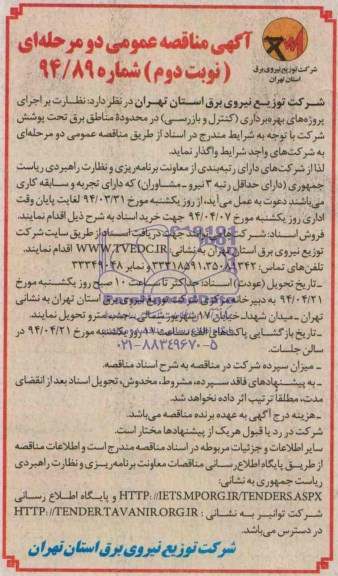 آگهی مناقصه عمومی دو مرحله‌ای
(نوبت دوم) شماره ۹۴/۸۹
شرکت توزیع نیروی برق
استان تهران
شرکت توزیع نیروی برق استان تهران در نظر دارد: نظارت بر اجرای
پروژه‌های بهره‌برداری (کنترل و بازرسی) در محدودهٔ مناطق برق تحت پوشش
شرکت با توجه به شرایط مندرج در اسناد از طریق مناقصه عمومی دو مرحله‌ای
به شرکت‌های واجد شرایط واگذار نماید.
لذا از شرکت‌های دارای رتبه‌بندی از معاونت برنامه‌ریزی و نظارت راهبردی ریاست
جمهوری (دارای حداقل رتبه ۳ نیرو ـ مشاوران) که دارای تجربه و سابقه کاری
می‌باشند دعوت به عمل می‌آید، از روز یکشنبه مورخ ۹۴/۰۳/۳۱ لغایت پایان وقت
اداری روز یکشنبه مورخ ۹۴/۰۴/۰۷ جهت خرید اسناد به شرح ذیل اقدام نمایند.
فروش اسناد: شرکت‌ها جهت دریافت اسناد از طریق سایت شرکت
توزیع نیروی برق استان تهران به نشانی: WWW.TVEDC.IR اقدام نمایند.
تلفن‌های تماس: و نمابر ۳۳۳۴۹۰۴۸
ـ تاریخ تحویل (عودت) اسناد: حداکثر تا ساعت ۱۰ صبح روز یکشنبه مورخ
۹۴/۰۴/۲۱ به دبیرخانه مرکزی شرکت توزیع نیروی برق استان تهران به نشانی
تهران ـ میدان شهدا ـ خیابان ۱۷ شهریور شمالی ـ جنب مترو تحویل نمایند.
ـ تاریخ بازگشایی پاکت‌های الف ساعت ۱۱ روز یکشنبه مورخ ۹۴/۰۴/۲۱ در
سالن جلسات.
۰۲۱-۸۸۳۴۹۶۷۰-۵
ـ میزان سپرده شرکت در مناقصه به شرح اسناد مناقصه.
ـ به پیشنهادهای فاقد سپرده، مشروط، مخدوش، تحویل اسناد بعد از انقضای
مدت، مطلقاً ترتیب اثر داده نخواهد شد.
ـ هزینه درج آگهی به عهده برنده مناقصه می‌باشد.
شرکت در رد یا قبول هریک از پیشنهادها مختار است.
سایر اطلاعات و جزئیات مربوطه در اسناد مناقصه مندرج است و اطلاعات مناقصه
از طریق پایگاه اطلاع‌رسانی مناقصات معاونت برنامه‌ریزی و نظارت راهبردی
ریاست جمهوری به نشانی:
HTTP://IETS.MPORG.IR/TENDERS.ASPX و پایگاه اطلاع رسانی
شرکت توانیر به نشانی: HTTP://TENDER.TAVANIR.ORG.IR
در دسترس می‌باشد.
شرکت توزیع نیروی برق استان تهران